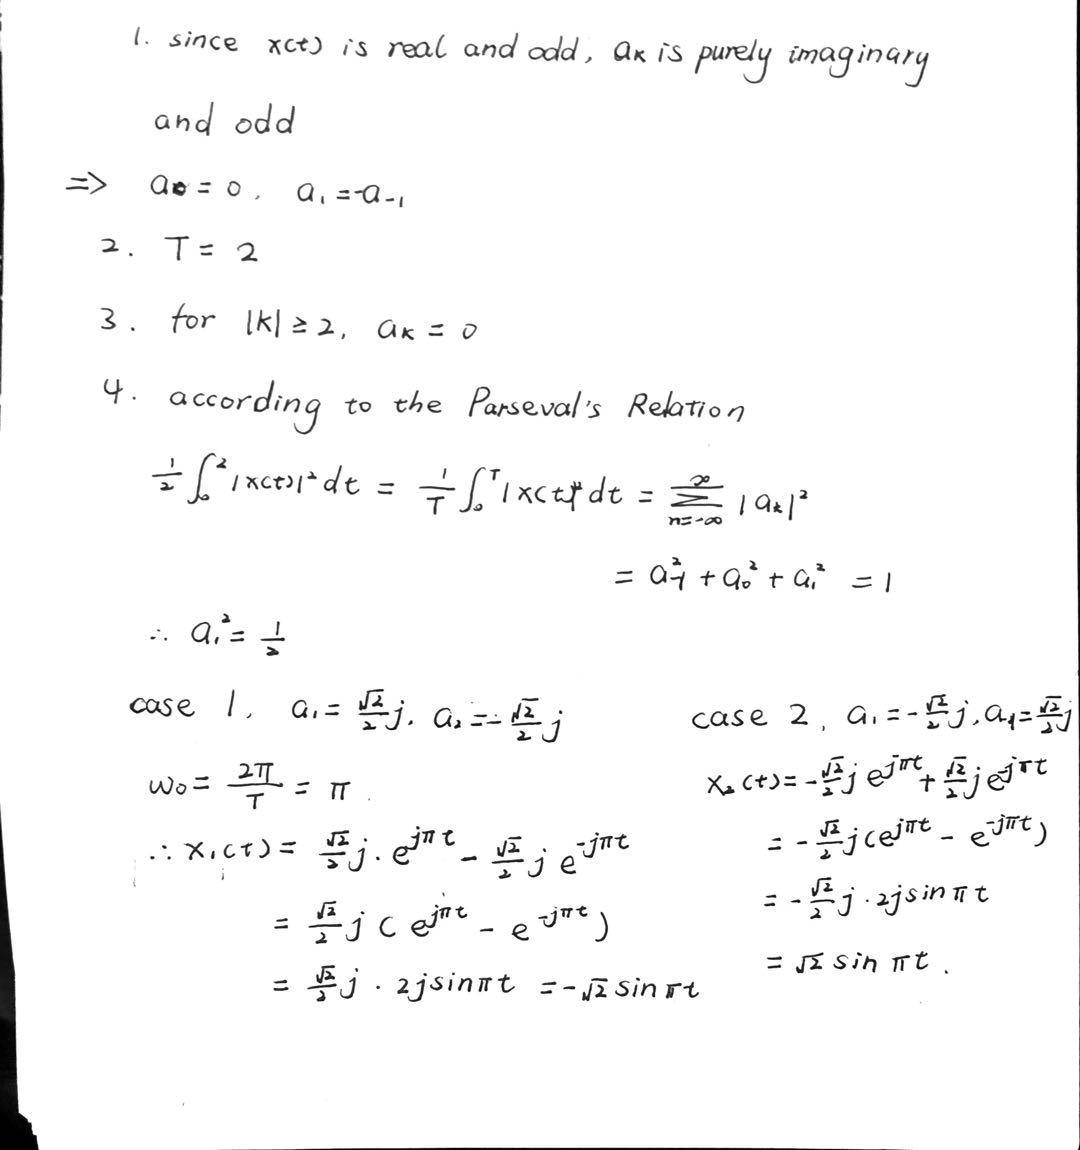 1. since x(t) is real and odd, aₖ is purely imaginary
and odd
=> a₀ = 0, a₁ = -a₋₁
2. T = 2
3. for |k| ≥ 2, aₖ = 0
4. according to the Parseval's Relation
1/2 ∫₀² |x(t)|² dt = 1/T ∫₀ᵀ |x(t)|² dt = Σₙ₌₋∞^∞ |aₖ|²
= a₋₁² + a₀² + a₁² = 1
∴ a₁² = 1/2
case 1, a₁ = √2/2 j, a₂ = -√2/2 j
ω₀ = 2π/T = π
∴ x₁(t) = √2/2 j · e^(jπt) - √2/2 j e^(-jπt)
= √2/2 j (e^(jπt) - e^(-jπt))
= √2/2 j · 2j sin πt = -√2 sin πt
case 2, a₁ = -√2/2 j, a₋₁ = √2/2 j
x₂(t) = -√2/2 j e^(jπt) + √2/2 j e^(jπt)
= -√2/2 j (e^(jπt) - e^(-jπt))
= -√2/2 j · 2j sin πt
= √2 sin πt.